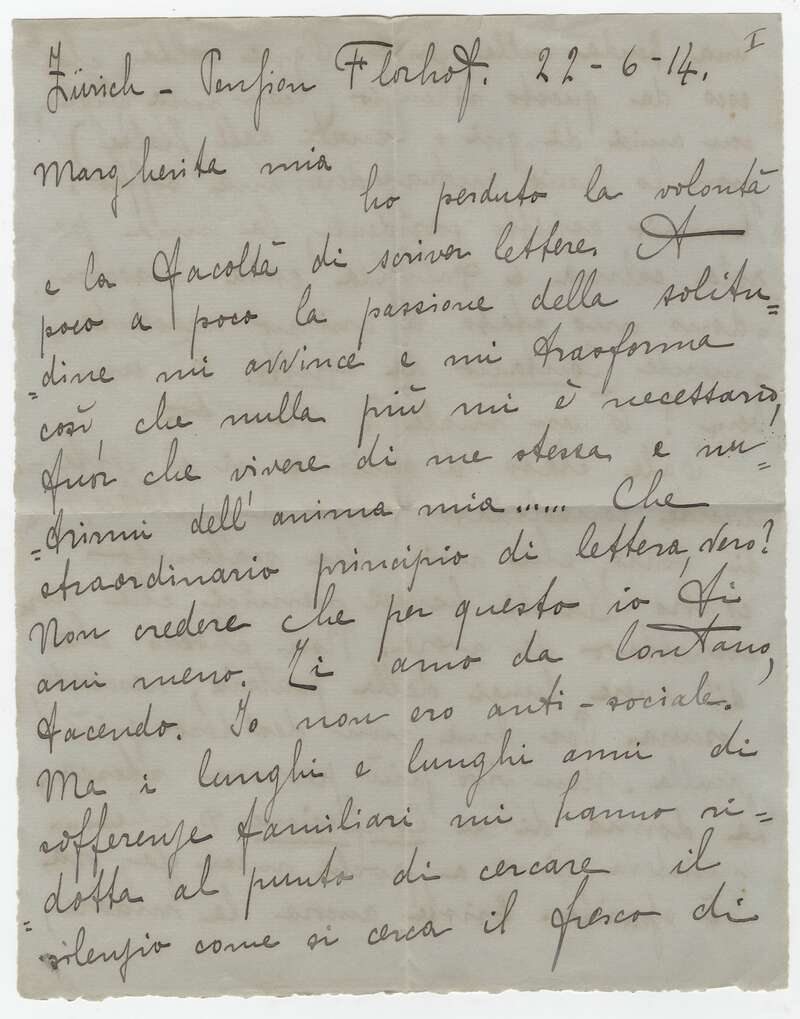 I
Zürich - Pension Florhof. 22-6-14.
Margherita mia
ho perduto la volontà
e la facoltà di scriver lettere. A
poco a poco la passione della solitu=
=dine mi avvince e mi trasforma
così, che nulla più mi è necessario,
fuor che vivere di me stessa e nu=
=trirmi dell'anima mia...... Che
straordinario principio di lettera, vero?
Non credere che per questo io ti
ami meno. Ti amo da lontano,
tacendo. Io non ero anti-sociale.
Ma i lunghi e lunghi anni di
sofferenze familiari mi hanno ri=
=dotta al punto di cercare il
silenzio come si cerca il fresco di